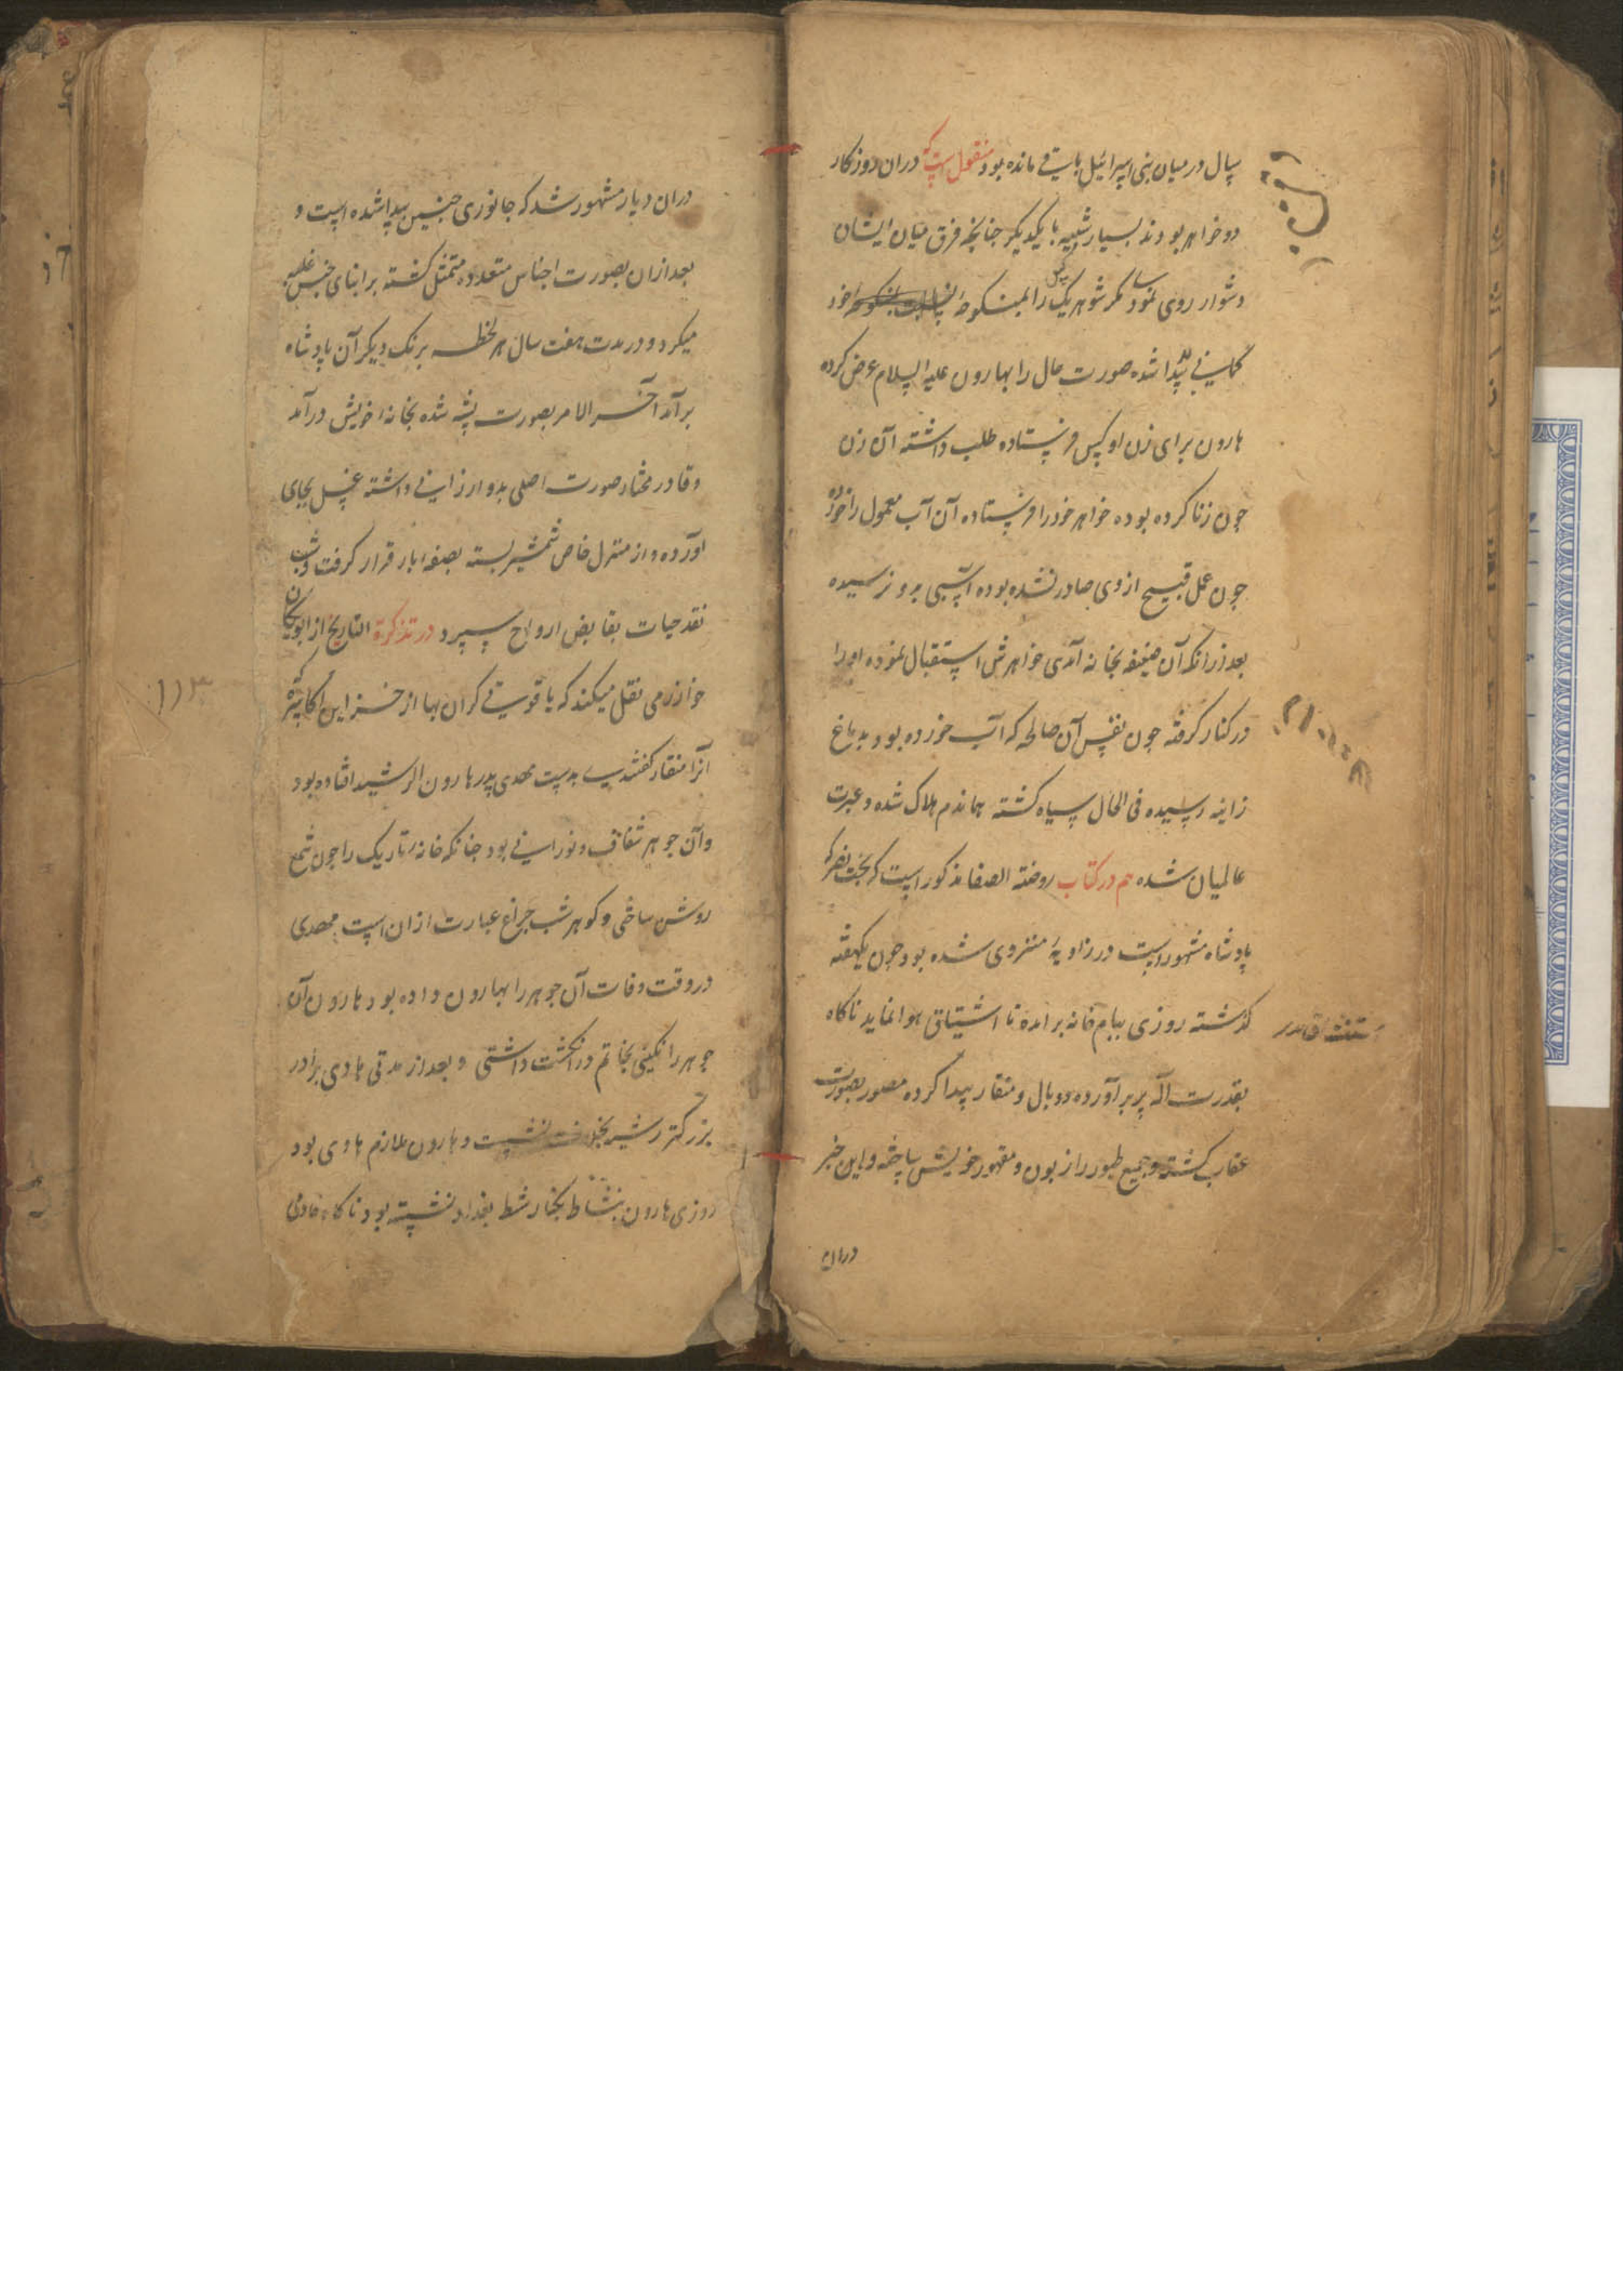 سال در میان بنی اسرائیل باقی مانده بود منقول است که دران روزکار
دو خواهر بودند بسیار شبیه با یکدیکر جنانجه فرق میان ایشان
دشوار روی نمود مکر شوهر یکی را بمنکوحهٔ خود
کمانی بد پیدا شده صورت حال را بهارون علیه السلام عرض کرده
هارون برای زن او کس فرستاده طلب داشته آن زن
جون زنا کرده بوده خواهر خود را فرستاده آن آب معمول را خورده
جون عمل قبیح از وی صادر نشده بوده آسیبی برو نرسیده
بعد ازانکه آن ضعیفه بخانه آمدی خواهرش استقبال نموده او را
در کنار کرفته جون نفس آن صالحه که آب خورده بود بدماغ
زانیه رسیده فی الحال سیاه کشته هماندم هلاک شده و عبرت
عالمیان شده هم در کتاب روضته الصفا مذکور است که بخت نصر که
پادشاه مشهور است در زاویهٔ منزوی شده بود جون یکهفته
کذشته روزی ببام خانه برامده تا اشتیاق هوا نماید ناکاه
بقدرت اله پر برآورده دو بال و منقار پیدا کرده مصور بصورت
عقاب کشته و جمیع طیور را زبون و مقهور خویش ساخته و این خبر
دران
دران دیار مشهور شد که جانوری جنین پیدا شده است و
بعد ازان بصورت اجناس متعدده متمثل کشته بر ابنای جنس غلبه
میکرد و در مدت هفت سال هر لحظه برنک دیکر آن پادشاه
برآمد آخر الامر بصورت پشه شده بخانهٔ خویش درآمد
و قادر مختار صورت اصلی بدو ارزانی داشته غسل بجای
آورده و از منزل خاص شمشیر بسته بصفهٔ بار قرار کرفت و شب
نقد حیات بقابض ارواح سپرد در تذکرة التاریخ از ابو ریحان
خوارزمی نقل میکند که یاقوتی کران بها از خزاین اکاسره که
آنرا منقار کفتندی بدست مهدی پدر هارون الرشید افتاده بود
و آن جوهر شفاف و نورانی بود جنانکه خانهٔ تاریک را جون شمع
روشن ساختی و کوهر شب جراغ عبارت ازان است مهدی
در وقت وفات آن جوهر را بهارون داده بود هارون آن
جوهر را نکینی بخاتم در انکشت داشتی و بعد از مدتی هادی برادر
بزرکتر رشید بخلافت نشست و هارون ملازم هادی بود
روزی هارون بنشاط بکنار شط بغداد نشسته بود ناکاه خادمی
۱۱۳